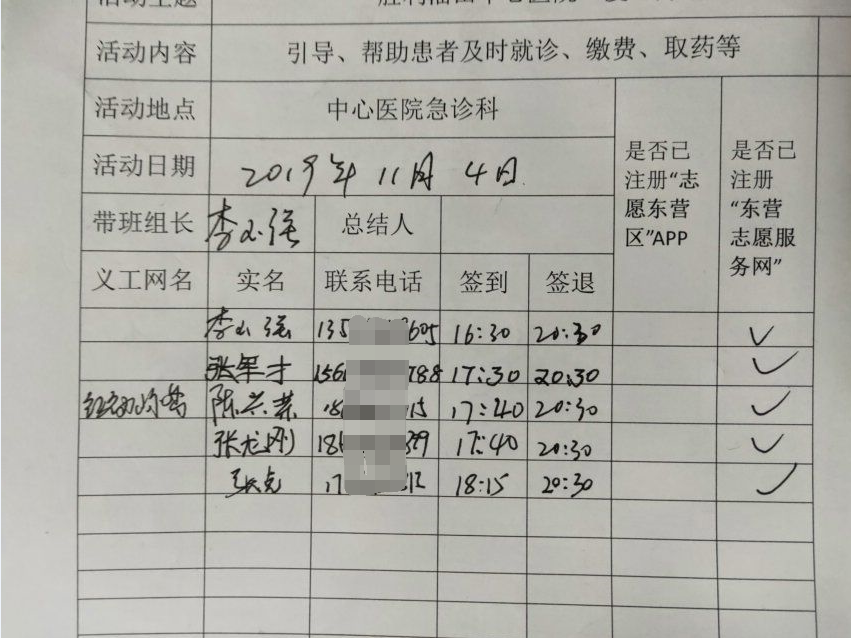 活动主题
活动内容 引导、帮助患者及时就诊、缴费、取药等
活动地点 中心医院急诊科
活动日期 2019年11月4日
是否已注册“志愿东营区”APP
是否已注册“东营志愿服务网”
带班组长 李小强 总结人
义工网名 实名 联系电话 签到 签退
李小强 135 605 16:30 20:30 ✓
张军才 156 788 17:30 20:30 ✓
陈兴荣 18 15 17:40 20:30 ✓
张龙刚 18 17:40 20:30 ✓
17 812 18:15 20:30 ✓